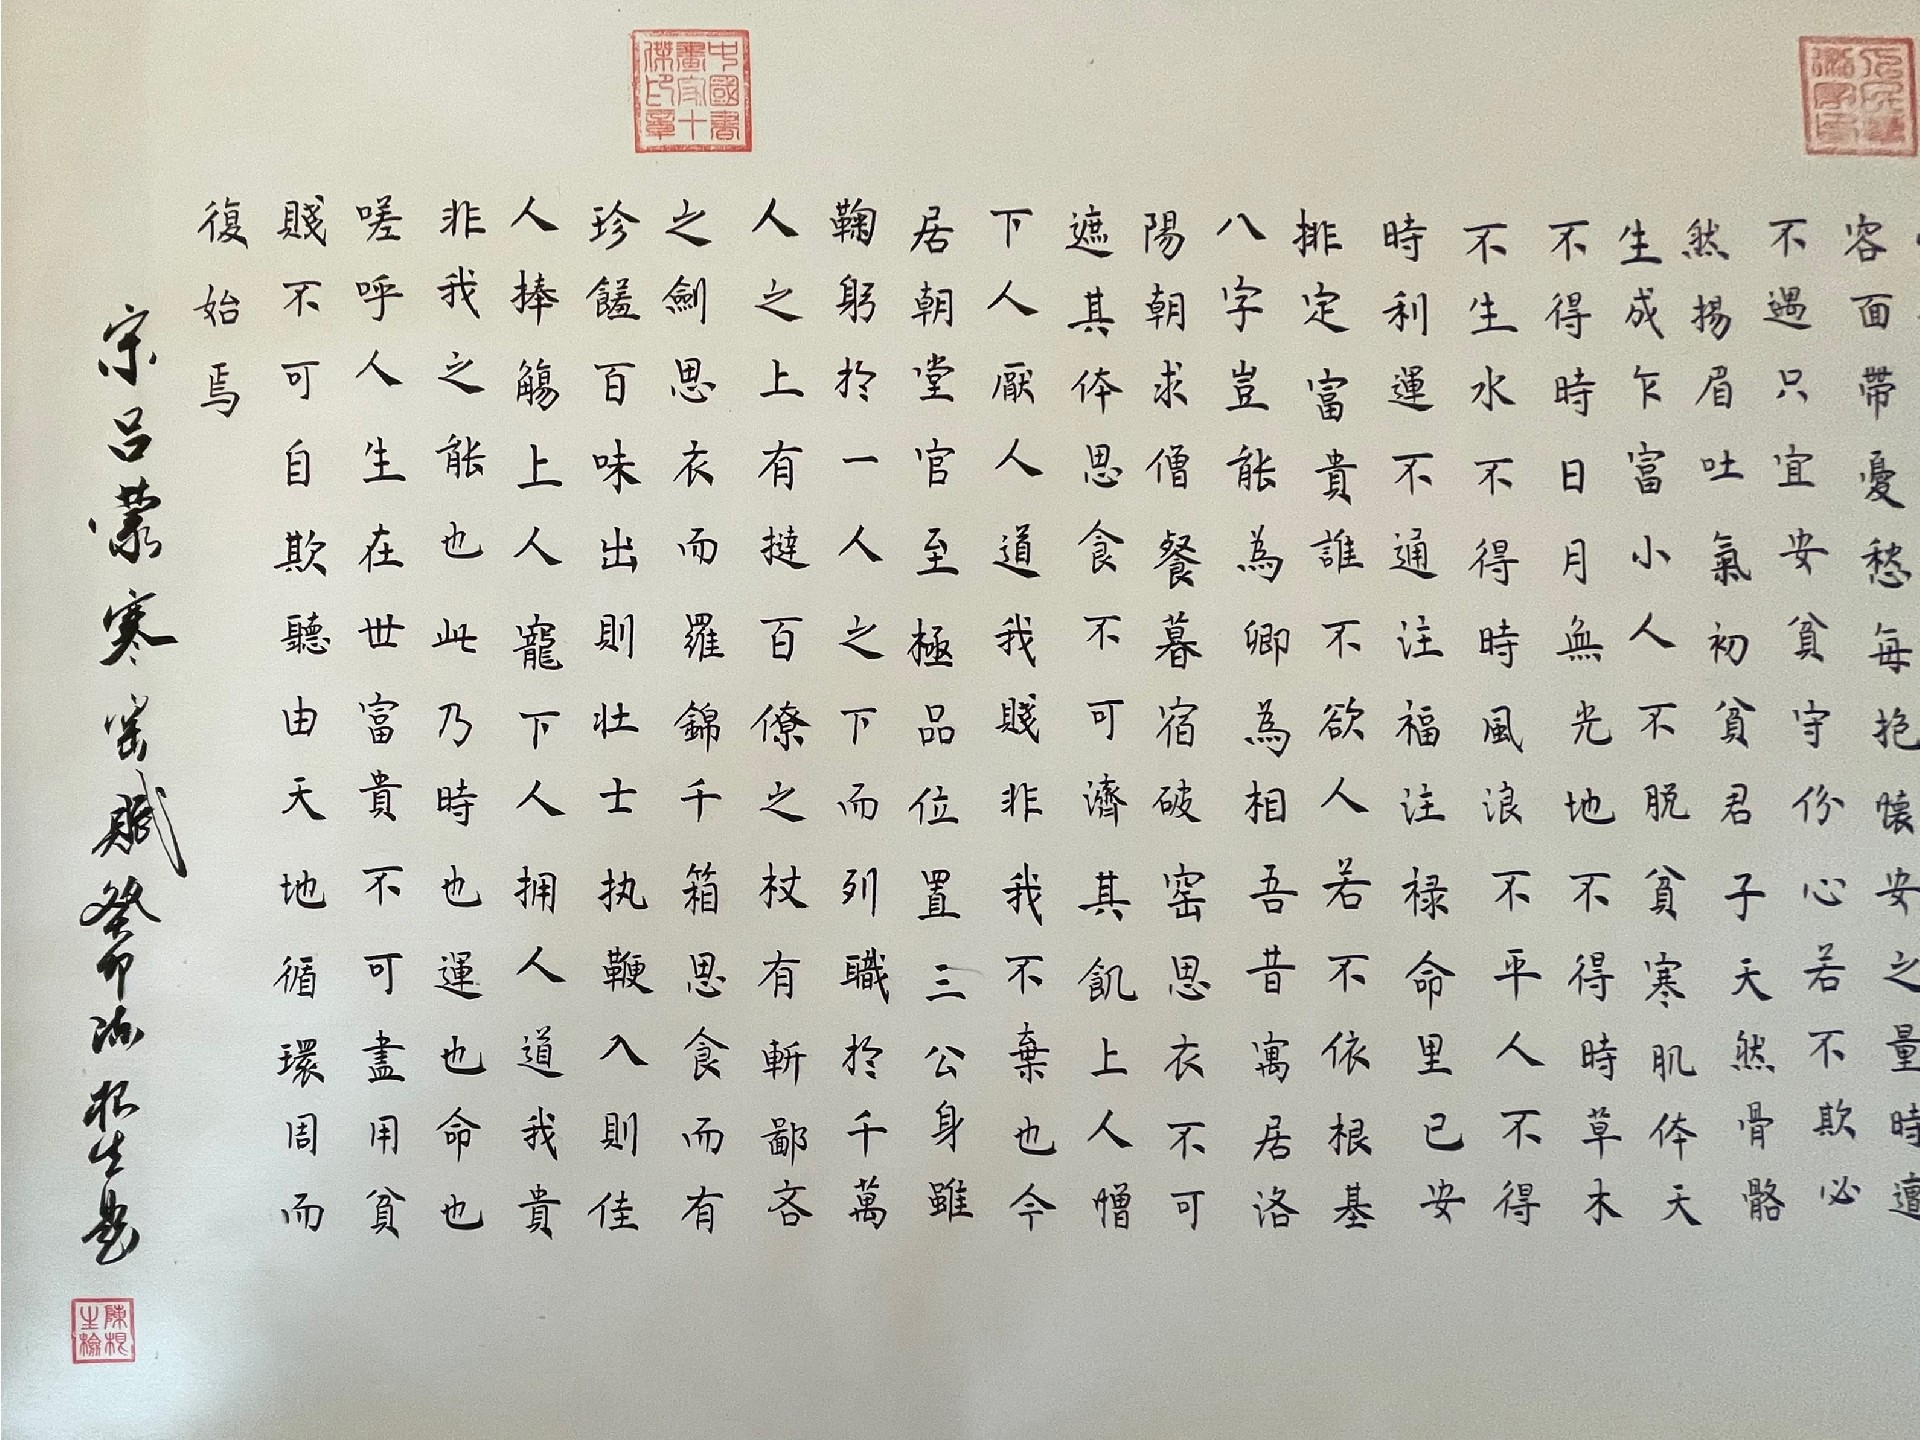 容面帶憂愁每抱懷安之量時遭
不遇只宜安貧守份心若不欺必
然揚眉吐氣初貧君子天然骨骼
生成乍富小人不脱貧寒肌体天
不得時日月無光地不得時草木
不生水不得時風浪不平人不得
時利運不通注福注禄命里已安
排定富貴誰不欲人若不依根基
八字豈能為卿為相吾昔寓居洛
陽朝求僧餐暮宿破窑思衣不可
遮其体思食不可濟其飢上人憎
下人厭人道我賤非我不棄也今
居朝堂官至極品位置三公身雖
鞠躬於一人之下而列職於千萬
人之上有撻百僚之杖有斬鄙吝
之劍思衣而羅錦千箱思食而有
珍饈百味出則壮士执鞭入則佳
人捧觴上人寵下人拥人道我貴
非我之能也此乃時也運也命也
嗟呼人生在世富貴不可盡用貧
賤不可自欺聽由天地循環周而
復始焉
宋吕蒙寒窑賦癸卯根生
中國書畫家十傑印章
陳根生